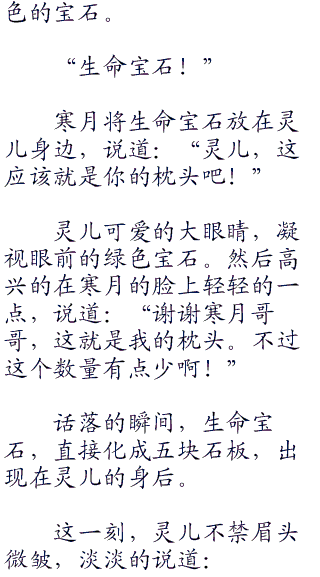 色的宝石。
“生命宝石！”
寒月将生命宝石放在灵
儿身边，说道：“灵儿，这
应该就是你的枕头吧！”
灵儿可爱的大眼睛，凝
视眼前的绿色宝石。然后高
兴的在寒月的脸上轻轻的一
点，说道：“谢谢寒月哥
哥，这就是我的枕头。不过
这个数量有点少啊！”
话落的瞬间，生命宝
石，直接化成五块石板，出
现在灵儿的身后。
这一刻，灵儿不禁眉头
微皱，淡淡的说道：